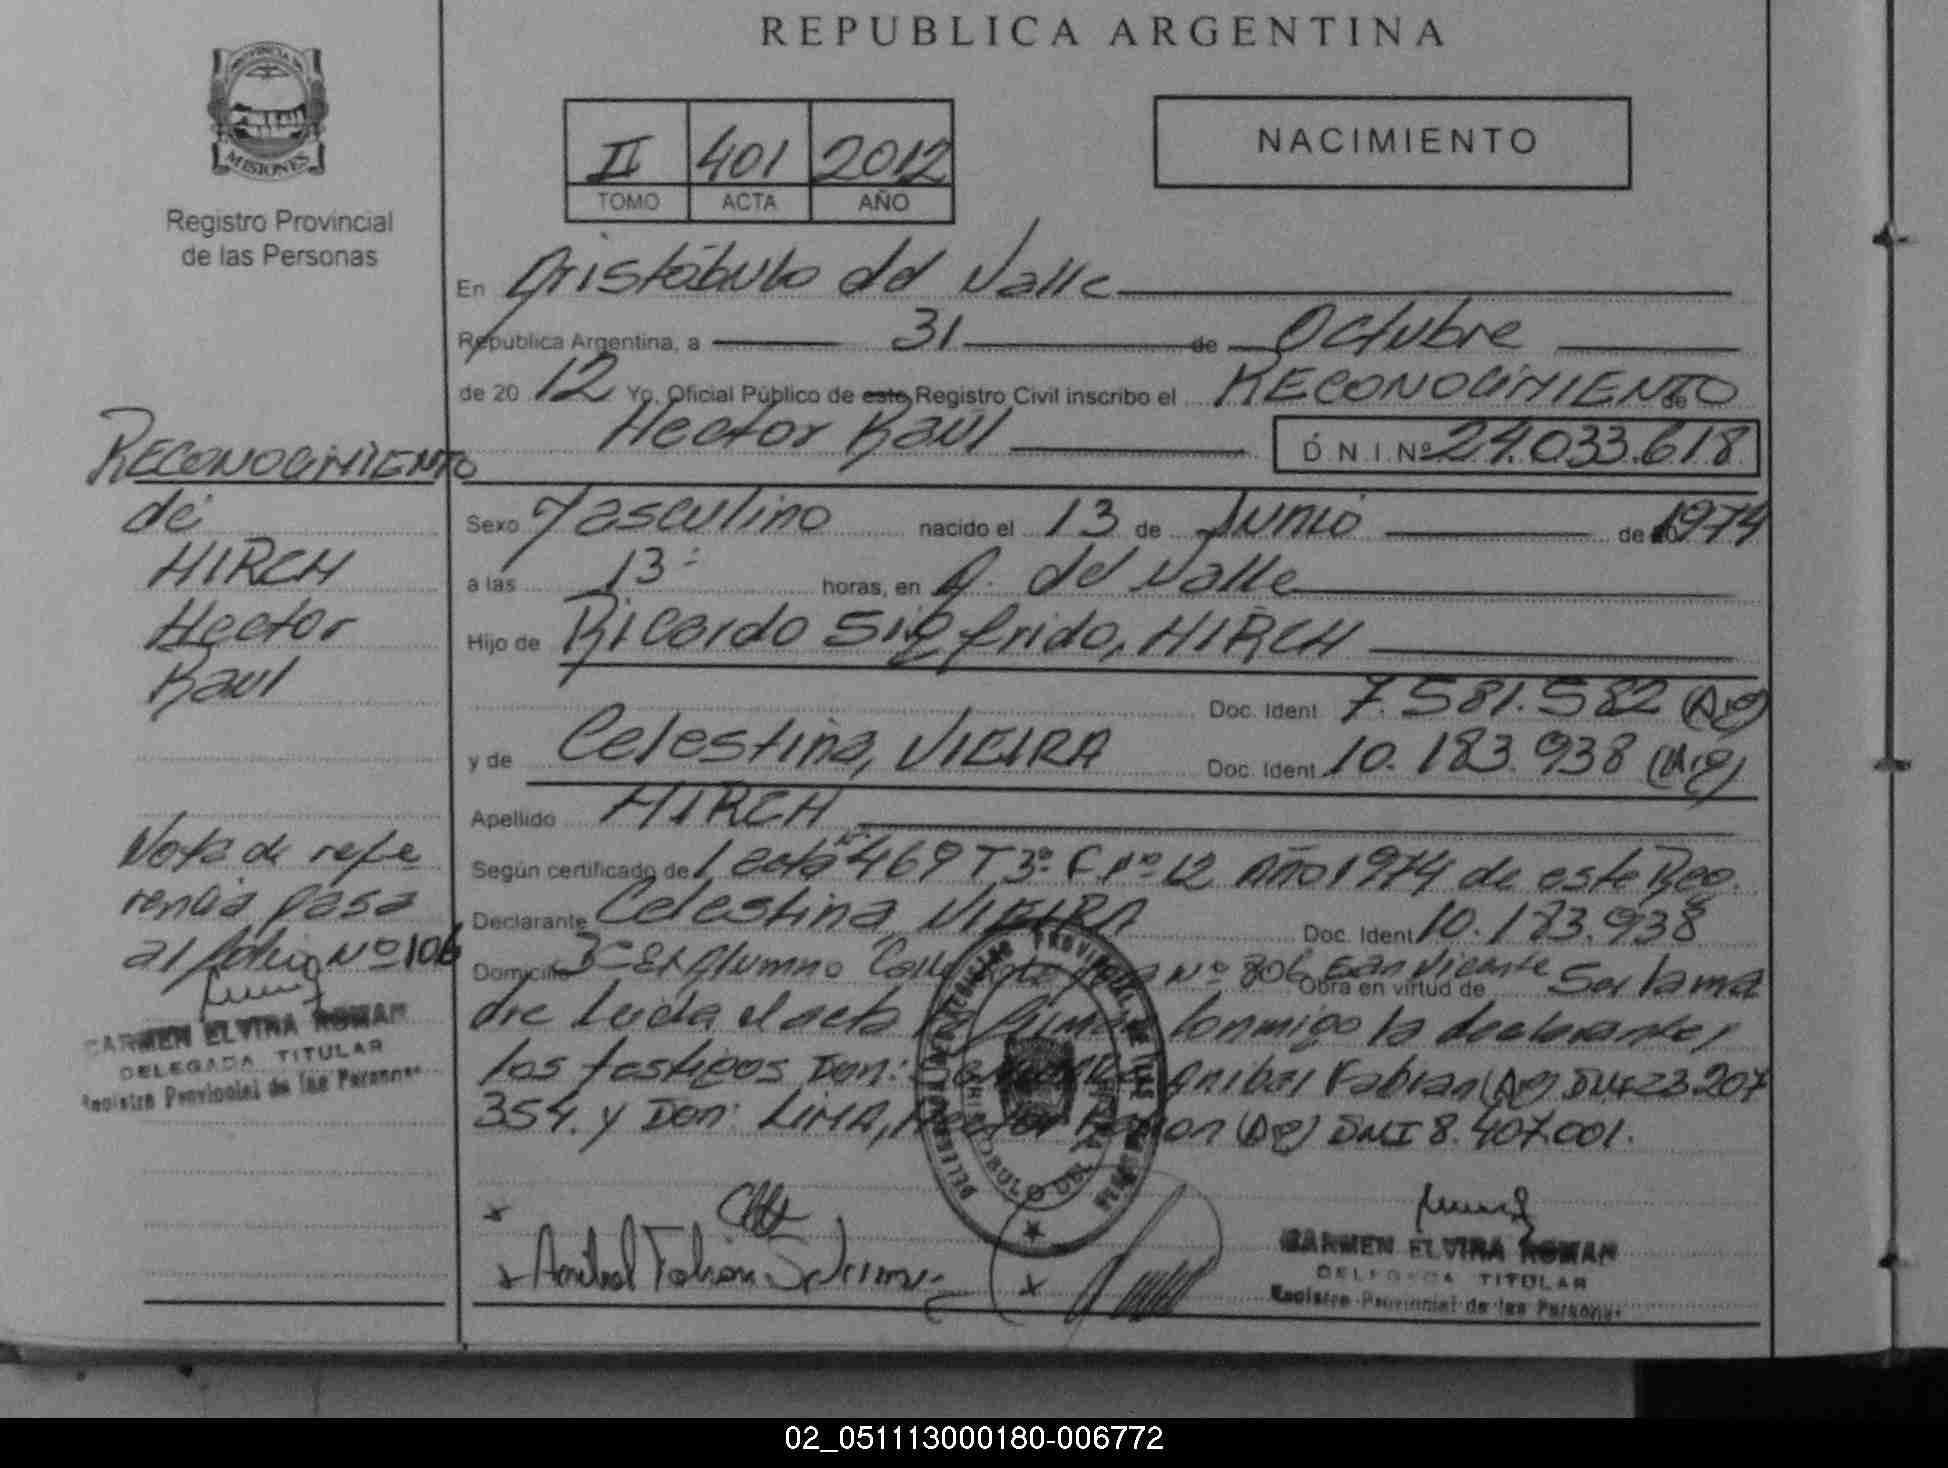 REPUBLICA ARGENTINA
PROVINCIA DE
MISIONES
Registro Provincial
de las Personas
II 401 2012
TOMO ACTA AÑO
NACIMIENTO
En Aristóbulo del Valle
República Argentina, a 31 de Octubre
de 20 12 Yo, Oficial Público de este Registro Civil inscribo el RECONOCIMIENTO de
Hector Raúl D.N.I. Nº 24.033.618
Sexo Masculino nacido el 13 de Junio de 1974
a las 13 horas, en A. del Valle
Hijo de Ricardo Sigfrido, HIRCH
Doc. Ident 7.581.582 (Arg)
y de Celestina, VIEIRA Doc. Ident 10.183.938 (Arg)
Apellido HIRCH
Según certificado de acta Nº 469 T 3º F. Nº 12 Año 1974 de este Reg.
Declarante Celestina VIEIRA Doc. Ident 10.183.938
Domicilio Nº 806 San Vicente Obra en virtud de Ser la ma
dre Leída el acta la firma conmigo la declarante y
los testigos Don: Anibal Fabian (Arg) DNI 23.207
354. y Don: LIMA, Hector Ramon (Arg) DNI 8.407.001.
RECONOCIMIENTO
de
HIRCH
Hector
Raul
Nota de refe
rencia pasa
al folio Nº 106
CARMEN ELVIRA ROMAN
DELEGADA TITULAR
Registro Provincial de las Personas
Anibal Fabian
CARMEN ELVIRA ROMAN
DELEGADA TITULAR
Registro Provincial de las Personas
02_051113000180-006772